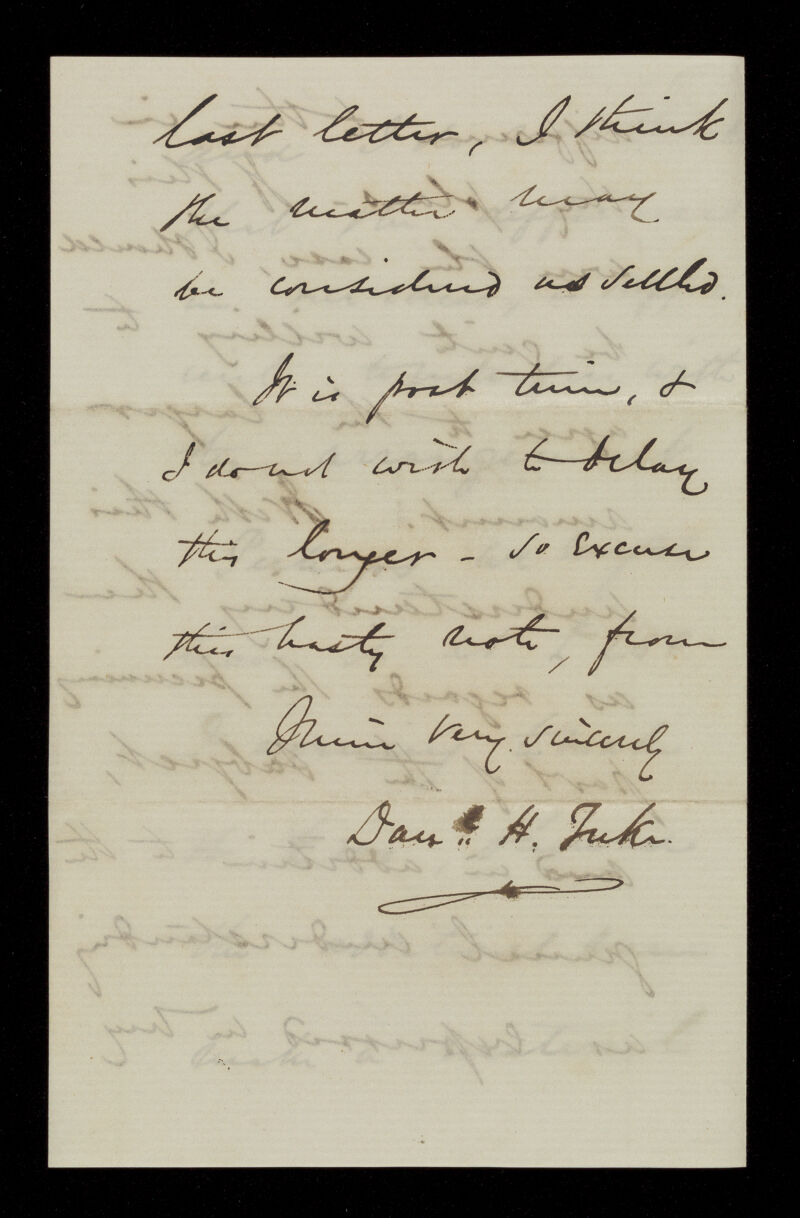 last letter, I think
the matter may
be considered as settled.
It is post time, &
I do not wish to delay
this longer - so excuse
this hasty note, from
Thine very sincerely
Danl. H. Tuke.